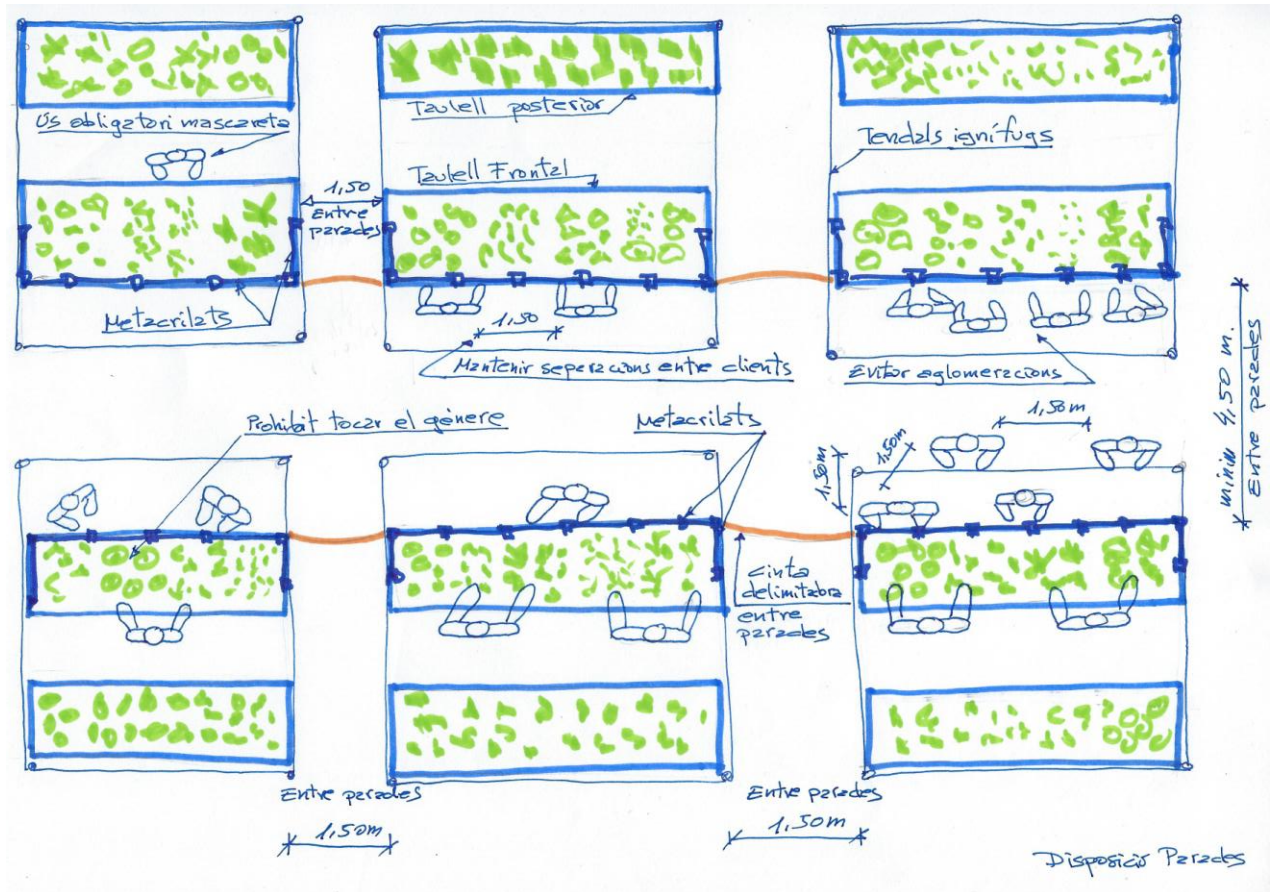 Taulell posterior
Ús obligatori mascareta
Tendals ignífugs
Taulell Frontal
1,50
Entre
parades
Metacrilats
1,50
Mantenir separacions entre clients
Evitar aglomeracions
mínim 4,50 m.
Entre parades
Prohibit tocar el gènere
Metacrilats
1,50m
1,50m
1,50m
cinta
delimitadora
entre
parades
Entre parades
1,50m
Entre parades
1,50m
Disposició Parades